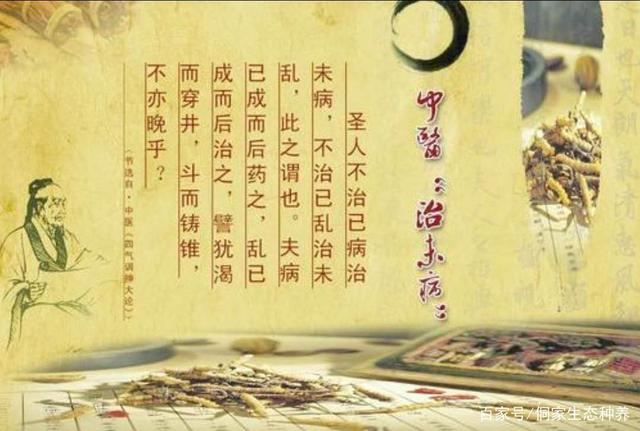 中醫“治未病”
圣人不治已病治
未病，不治已乱治未
乱，此之谓也。夫病
已成而后药之，乱已
成而后治之，譬犹渴
而穿井，斗而铸锥，
不亦晚乎？
（书选自·中医《四气调神大论》）
百家号/侗家生态种养